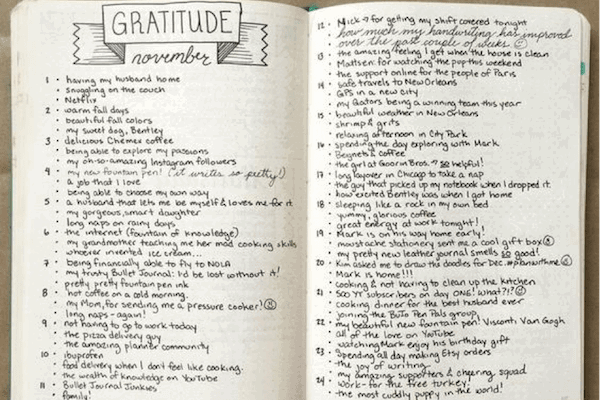 GRATITUDE
november
1 • having my husband home
• snuggling on the couch
• Netflix
2 • warm fall days
• beautiful fall colors
• my sweet dog, Bentley
3 • delicious Chemex coffee
• being able to explore my passions
• my oh-so-amazing Instagram followers
4 • my new fountain pen! (it writes so pretty!)
• a job that I love
• being able to choose my own way
5 • a husband that lets me be myself & loves me for it
• my gorgeous, smart daughter
• long naps on rainy days
6 • the internet (fountain of knowledge)
• my grandmother teaching me her mad cooking skills
• whoever invented ice cream...
7 • being financially able to fly to NOLA
• my trusty Bullet Journal: I'd be lost without it!
• pretty pretty fountain pen ink
8 • hot coffee on a cold morning.
• my Mom, for sending me a pressure cooker!
• long naps - again!
9 • not having to go to work today
• the pizza delivery guy
• the amazing planner community
10 • ibuprofen
• food delivery when I don't feel like cooking.
• the wealth of knowledge on YouTube
11 • Bullet Journal Junkies
• family!
12 • Mick → for getting my shift covered tonight
• how much my handwriting has improved
over the past couple of weeks
• the amazing feeling I get when the house is clean
13 • Mattsen: for watching the pup this weekend
• the support online for the people of Paris
14 • safe travels to New Orleans
• GPS in a new city
• my Gators being a winning team this year
15 • beautiful weather in New Orleans
• shrimp & grits
• relaxing afternoon in City Park
16 • spending the day exploring with Mark
• Beignets & coffee
• the girl at Goorin Bros. → so helpful!
17 • long layover in Chicago to take a nap
• the guy that picked up my notebook when I dropped it.
• how excited Bentley was when I got home
18 • sleeping like a rock in my own bed
• yummy, glorious coffee
• great energy at work tonight!
19 • Mark is on his way home early!
• moustache stationery sent me a cool gift box
• my pretty new leather journal smells so good!
20 • Kim asked me to draw the doodles for Dec. #planwithme
• Mark is home!!!
• cooking & not having to clean up the kitchen
21 • 500 YT subscribers on day ONE! what?!?
• cooking dinner for the best husband ever
• joining the BuJo Pen Pals group
22 • my beautiful new fountain pen! Visconti Van Gogh
• all of the love on YouTube
• watching Mark enjoy his birthday gift
23 • Spending all day making Etsy orders
• the joy of writing
• my amazing supporters & cheering squad
24 • Work- for the free turkey!
• the most cuddly puppy in the world!